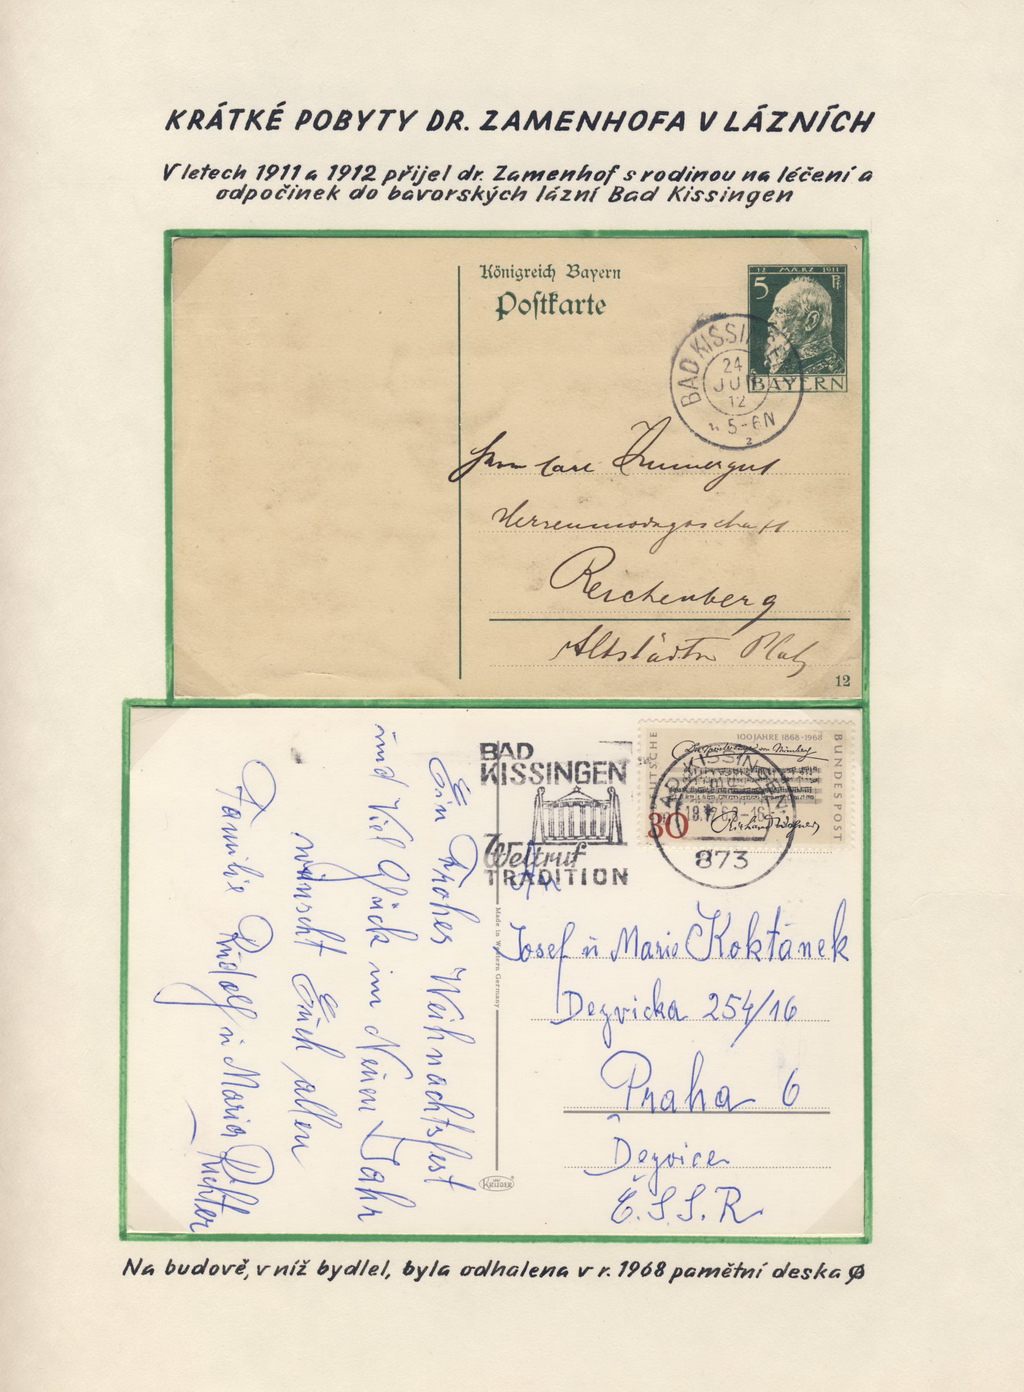 KRÁTKÉ POBYTY DR. ZAMENHOFA V LÁZNÍCH
V letech 1911 a 1912 přijel dr. Zamenhof s rodinou na léčení a
odpočinek do bavorských lázní Bad Kissingen
Königreich Bayern
Postkarte
12 MÄRZ 1911
5 Pf
BAYERN
BAD KISSIN
24
JU
12
5-6N
2
Herrn Carl
Reichenberg
Altstädter Platz
12
BAD
KISSINGEN
Weltruf
TRADITION
100 JAHRE 1868-1968
Die Meistersinger von Nürnberg
DEUTSCHE
BUNDESPOST
30
Richard Wagner
BAD KISSINGEN
873
Ein Frohes Weihnachtsfest
und Viel Glück im Neuen Jahr
wünscht Euch allen
Familie Rudolf u Maria Richter
Made in Western Germany
KRÜGER
An
Josef u Marie Koktánek
Dezvicka 254/16
Praha 6
Dezvice
Č.S.S.R.
Na budově, v níž bydlel, byla odhalena v r. 1968 pamětní deska